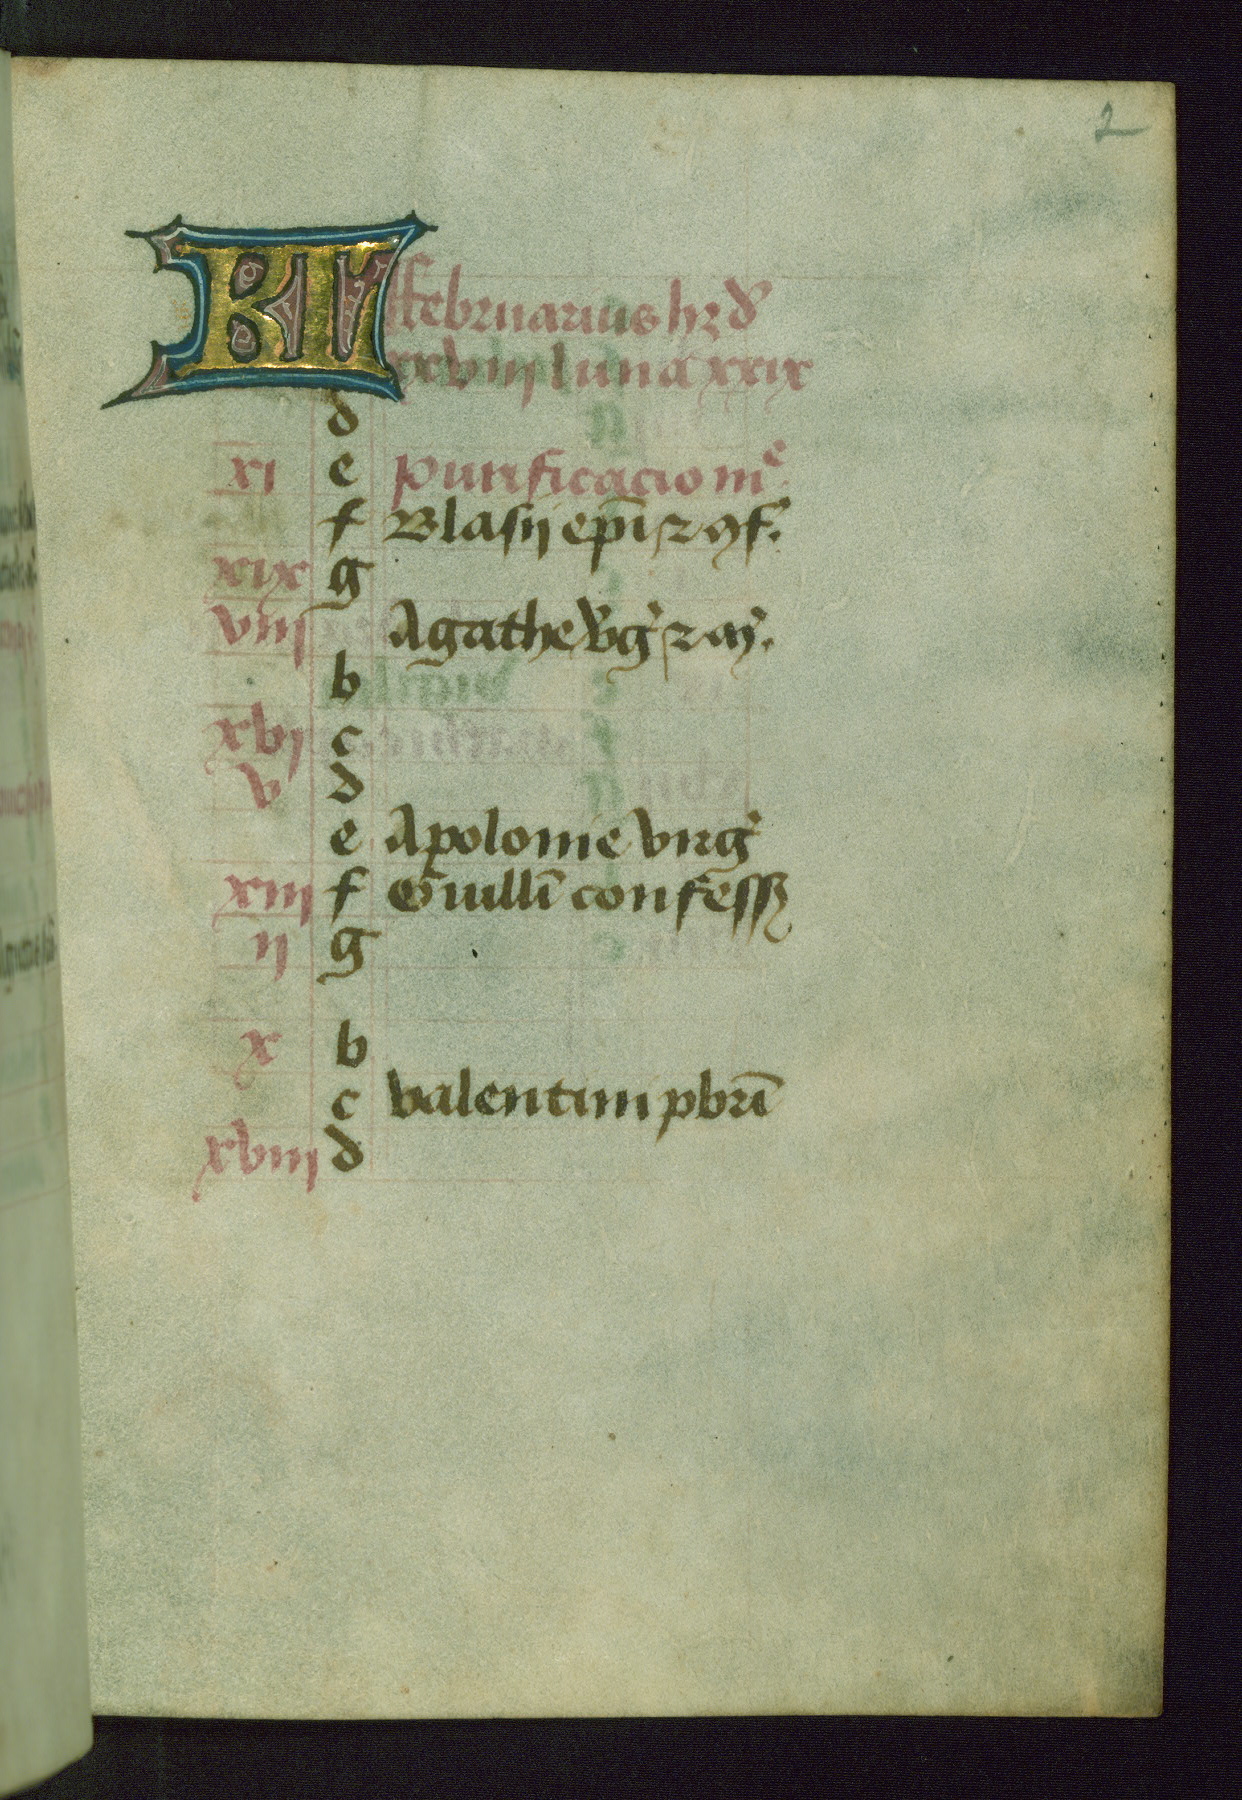 2
KL ffebruarius hꝫ d̕
xxviii luna xxix
d
xi e purificacio mᵉ
f Blasij ep̄i ⁊ ꝯf.
xix g
viij Agathe v̄g̕ ⁊ m̄r̕.
b
xvj c
v d
e Apolonie virg̕
xiij f Guill̄i confess̕
ij g
x b
c valentini p̄br̄i
xviij d